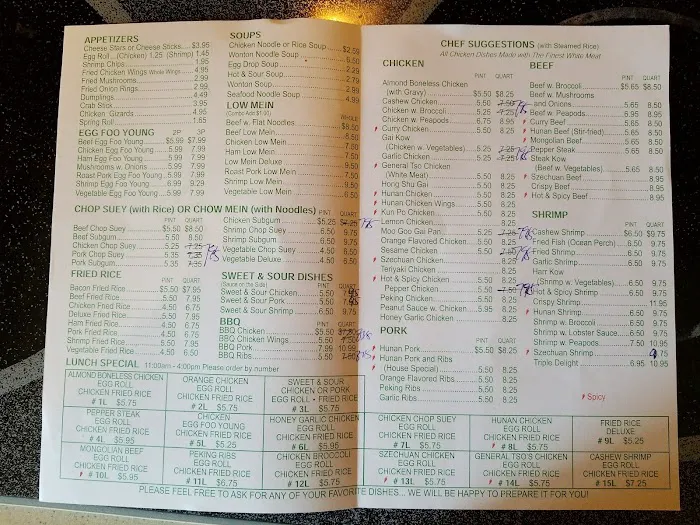 APPETIZERS
Cheese Stars or Cheese Sticks $3.95
Egg Roll (Chicken) 1.25 (Shrimp) 1.45
Shrimp Chips 1.95
Fried Chicken Wings Whole Wings 4.95
Fried Mushrooms 2.99
Fried Onion Rings 2.99
Dumplings 4.49
Crab Stix 3.95
Chicken Gizzards 4.95
Spring Roll 1.65
EGG FOO YOUNG 2P 3P
Beef Egg Foo Young $5.99 $7.99
Chicken Egg Foo Young 5.99 7.99
Ham Egg Foo Young 5.99 7.99
Mushrooms w. Onions 5.99 7.99
Roast Pork Egg Foo Young 5.99 7.99
Shrimp Egg Foo Young 6.99 9.29
Vegetable Egg Foo Young 5.99 7.99
SOUPS
Chicken Noodle or Rice Soup $2.50
Wonton Noodle Soup 6.50
Egg Drop Soup 2.29
Hot & Sour Soup 2.99
Wonton Soup 2.99
Seafood Noodle Soup 4.99
LOW MEIN
(Combo Add $1.95) WHOLE
Beef w. Flat Noodles $8.50
Beef Low Mein 8.50
Chicken Low Mein 7.50
Ham Low Mein 7.50
Low Mein Deluxe 9.50
Roast Pork Low Mein 7.50
Shrimp Low Mein 9.50
Vegetable Low Mein 6.50
CHOP SUEY (with Rice) OR CHOW MEIN (with Noodles)
PINT QUART
Beef Chop Suey $5.50 $8.50
Beef Subgum 5.50 8.50
Chicken Chop Suey 5.25 7.25
Pork Chop Suey 5.35 7.35
Pork Subgum 5.35 7.35
PINT QUART
Chicken Subgum $5.25 $7.25
Shrimp Chop Suey 6.50 9.75
Shrimp Subgum 6.50 9.75
Vegetable Chop Suey 4.50 6.50
Vegetable Deluxe 4.50 6.50
FRIED RICE
PINT QUART
Bacon Fried Rice $5.50 $7.95
Beef Fried Rice 5.50 7.95
Chicken Fried Rice 4.50 6.75
Deluxe Fried Rice 5.50 7.95
Ham Fried Rice 4.50 6.75
Pork Fried Rice 4.50 6.75
Shrimp Fried Rice 5.50 7.95
Vegetable Fried Rice 4.50 6.50
SWEET & SOUR DISHES
(Sauce on the Side) PINT QUART
Sweet & Sour Chicken 5.50
Sweet & Sour Pork 5.50
Sweet & Sour Shrimp 6.50 9.75
BBQ PINT QUART
BBQ Chicken $5.50
BBQ Chicken Wings 5.50
BBQ Pork 7.99 10.99
BBQ Ribs 5.50
CHEF SUGGESTIONS (with Steamed Rice)
All Chicken Dishes Made with The Finest White Meat
CHICKEN
PINT QUART
Almond Boneless Chicken
(with Gravy) $5.50 $8.25
Cashew Chicken 5.25 7.50
Chicken w. Broccoli 5.25 7.25
Chicken w. Peapods 6.75 8.95
Curry Chicken 5.50 8.25
Gai Kow
(Chicken w. Vegetables) 5.25 7.25
Garlic Chicken 5.25 7.25
General Tso Chicken
(White Meat) 5.50 8.25
Hong Shu Gai 5.50 8.25
Hunan Chicken 5.50 8.25
Hunan Chicken Wings 5.50 8.25
Kun Po Chicken 5.50 8.25
Lemon Chicken 8.25
Moo Goo Gai Pan 5.25
Orange Flavored Chicken 5.50 8.25
Sesame Chicken 5.50
Szechuan Chicken 5.50 8.25
Teriyaki Chicken 8.25
Hot & Spicy Chicken 5.50 8.25
Pepper Chicken 5.50
Peking Chicken 5.50 8.25
Peanut Sauce w. Chicken 5.95 8.25
Honey Garlic Chicken 8.25
PORK
PINT QUART
Hunan Pork $5.50 $8.25
Hunan Pork and Ribs
(House Special) 5.50 8.25
Orange Flavored Ribs 5.50 8.25
Peking Ribs 5.50 8.25
Garlic Ribs 5.50 8.25
BEEF
PINT QUART
Beef w. Broccoli $5.65 $8.50
Beef w. Mushrooms
and Onions 5.65 8.50
Beef w. Peapods 6.95 8.95
Curry Beef 5.65 8.50
Hunan Beef (Stir-fried) 5.65 8.50
Mongolian Beef 5.65 8.50
Pepper Steak 5.65 8.50
Steak Kow
(Beef w. Vegetables) 5.65 8.50
Szechuan Beef 8.95
Crispy Beef 8.95
Hot & Spicy Beef 8.95
SHRIMP
PINT QUART
Cashew Shrimp $6.50 $9.75
Fried Fish (Ocean Perch) 6.50 9.75
Fried Shrimp 6.50 9.75
Garlic Shrimp 6.50 9.75
Harr Kow
(Shrimp w. Vegetables) 6.50 9.75
Hot & Spicy Shrimp 6.50 9.75
Crispy Shrimp 11.95
Hunan Shrimp 6.50 9.75
Shrimp w. Broccoli 6.50 9.75
Shrimp w. Lobster Sauce 6.50 9.75
Shrimp w. Peapods 7.50 10.95
Szechuan Shrimp 9.75
Triple Delight 6.95 10.95
Spicy
LUNCH SPECIAL 11:00am - 4:00pm Please order by number
ALMOND BONELESS CHICKEN
EGG ROLL
CHICKEN FRIED RICE
# 1L $5.75
ORANGE CHICKEN
EGG ROLL
CHICKEN FRIED RICE
# 2L $5.75
SWEET & SOUR
CHICKEN OR PORK
EGG ROLL • FRIED RICE
# 3L $5.75
PEPPER STEAK
EGG ROLL
CHICKEN FRIED RICE
# 4L $5.95
CHICKEN
EGG FOO YOUNG
CHICKEN FRIED RICE
# 5L $5.25
HONEY GARLIC CHICKEN
EGG ROLL
CHICKEN FRIED RICE
# 6L $5.95
CHICKEN CHOP SUEY
EGG ROLL
CHICKEN FRIED RICE
# 7L $5.75
HUNAN CHICKEN
EGG ROLL
CHICKEN FRIED RICE
# 8L $5.75
FRIED RICE
DELUXE
# 9L $5.25
MONGOLIAN BEEF
EGG ROLL
CHICKEN FRIED RICE
# 10L $5.95
PEKING RIBS
EGG ROLL
CHICKEN FRIED RICE
# 11L $6.75
CHICKEN BROCCOLI
EGG ROLL
CHICKEN FRIED RICE
# 12L $5.75
SZECHUAN CHICKEN
EGG ROLL
CHICKEN FRIED RICE
# 13L $5.75
GENERAL TSO'S CHICKEN
EGG ROLL
CHICKEN FRIED RICE
# 14L $5.75
CASHEW SHRIMP
EGG ROLL
CHICKEN FRIED RICE
# 15L $7.25
PLEASE FEEL FREE TO ASK FOR ANY OF YOUR FAVORITE DISHES... WE WILL BE HAPPY TO PREPARE IT FOR YOU!